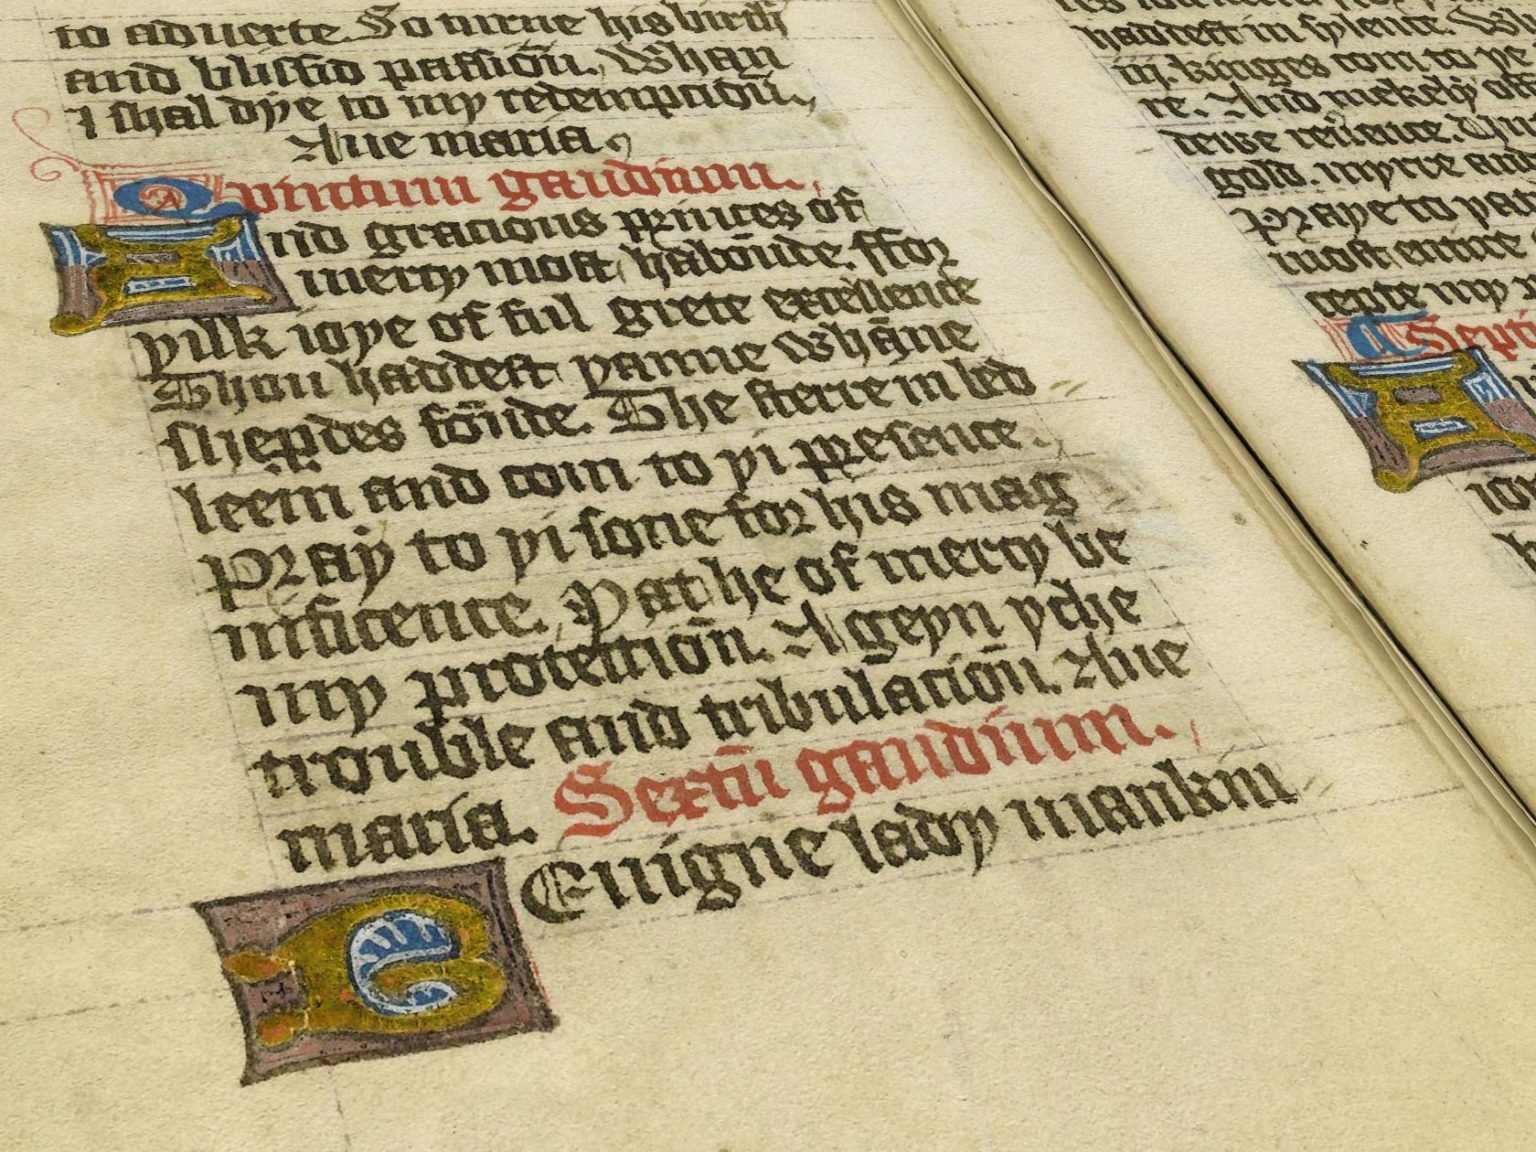 to aduerte. So turne his birth
and blissid passiōn. Whan
I shal dye to my redempciōn.
Aue maria.
Quintum gaudium.
And gracious princes of
mercy most habōnde. ffor
yilk ioye of ful grete excellence
Thou haddest yanne whāne
sheperdes fōnde. The sterre in bed
leēm and com to yi presence.
Pray to yi sone for his mag
nificence. Pat he of mercy be
my protectiōn. Ageyn yche
trouble and tribulaciōn. Aue
maria. Sextū gaudium.
Euigne lady mankin
haddest in sylence.
iij. kinges com to ye
re. And mekely
gold. myrre and
Praye to
most entire
cepte my
Septi